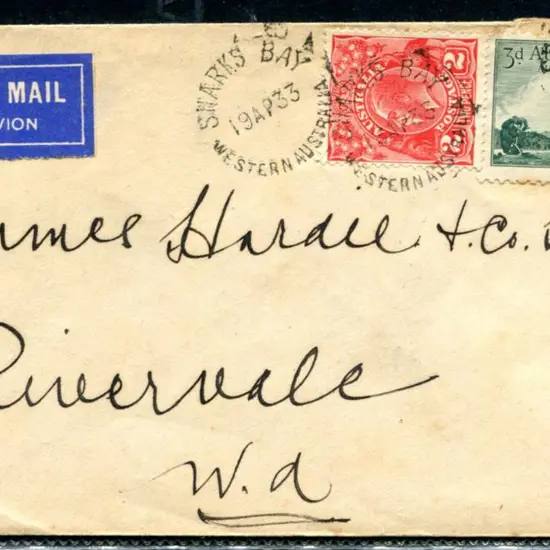 MAIL
VION
SHARKS BAY
19AP33
WESTERN AUSTRALIA
AUSTRALIA
POSTAGE
3d A
SHARKS BAY
WESTERN AUSTRALIA
ames Hardie & Co.
Rivervale
W.a